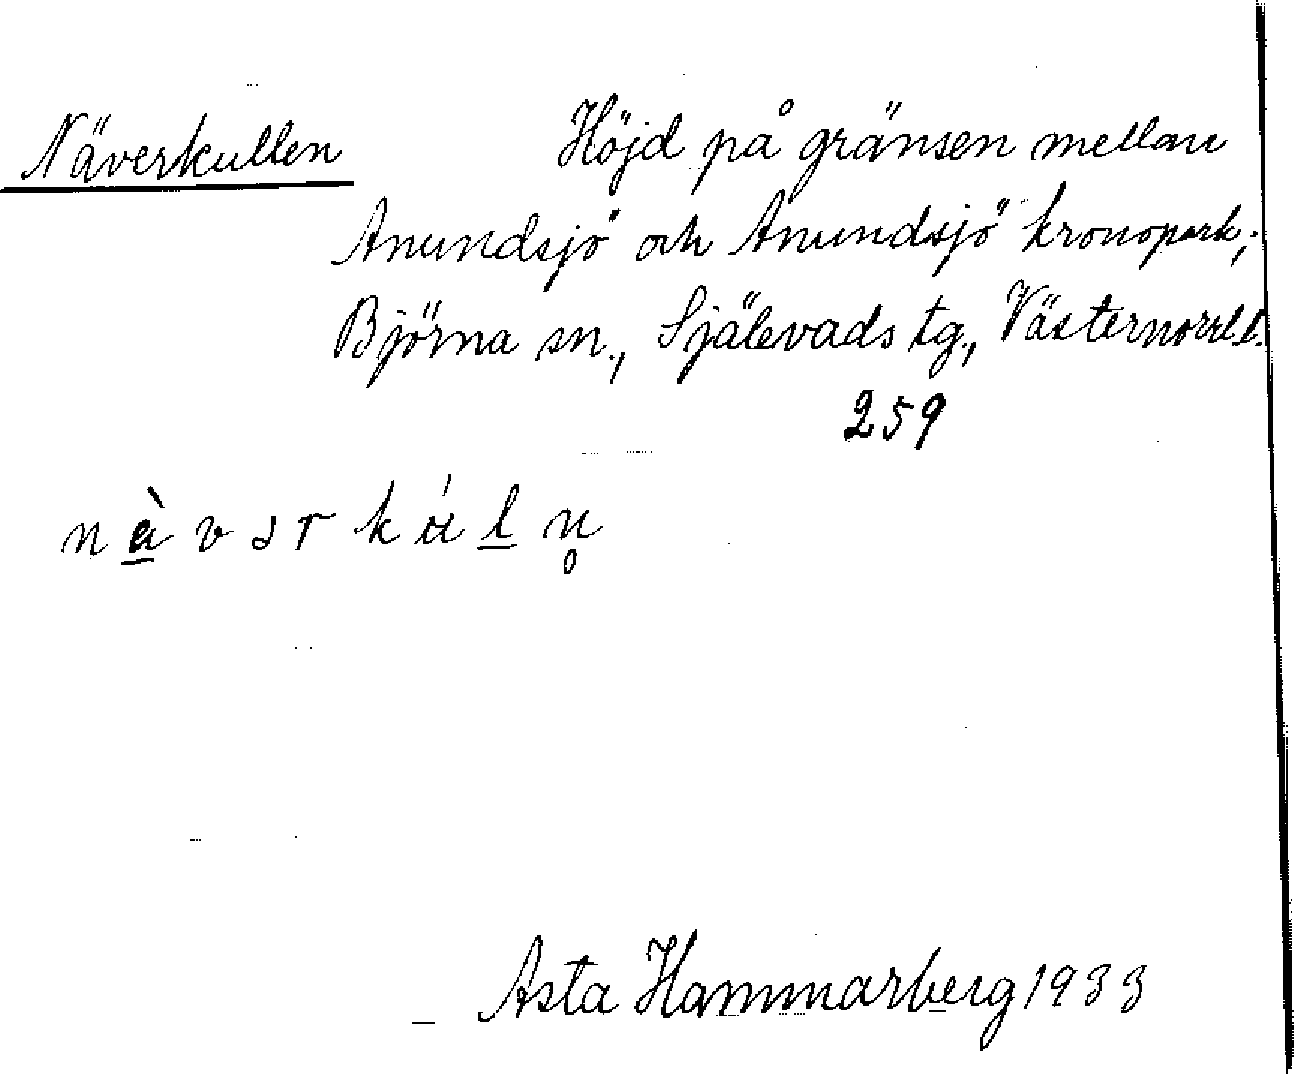 Näverkullen Höjd på gränsen mellan
Anundsjö och Anundsjö kronopark,
Björna sn., Själevads tg., Västernorrl. l.
259
Asta Hammarberg 1933